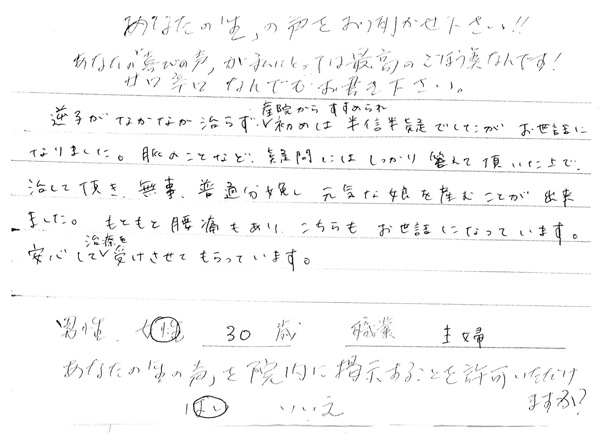 あなたの「生」の声をお聞かせ下さい!!
あなたの"喜びの声"が私にとっては最高のごほう美なんです!
甘口辛口なんでもお書き下さい。
逆子がなかなか治らず、産院からすすめられ初めは半信半疑でしたがお世話に
なりました。脈のことなど、疑問にはしっかり答えて頂いた上で、
治して頂き、無事、普通分娩し元気な娘を産むことが出来
ました。もともと腰痛もあり、こちらもお世話になっています。
安心して治療を受けさせてもらっています。
男性 女性 30歳 職業 主婦
あなたの「生の声」を院内に掲示することを許可いただけ
ますか?
はい いいえ